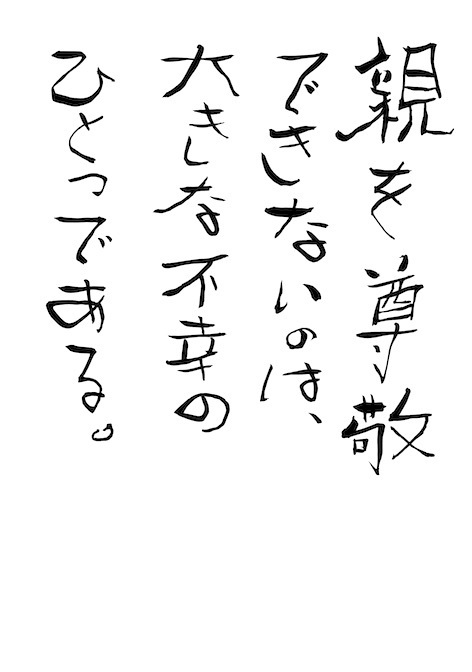 親を尊敬
できないのは、
大きな不幸の
ひとつである。